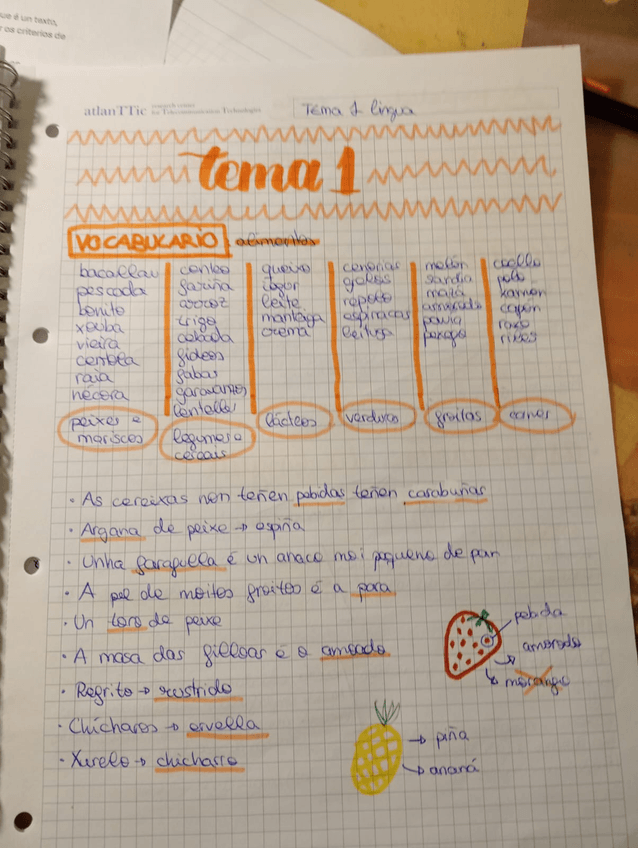 ue é un texto,
os criterios de
atlanTTic research center for Telecommunication Technologies
Tema 1 lingua
tema 1
VOCABULARIO: alimentos
bacallau
pescada
bonito
xouba
vieira
centola
raia
nécora
peixes e
mariscos
centeo
fariña
arroz
trigo
cebada
fideos
fabas
garavanzos
lentellas
legumes e
cereais
queixo
iogur
leite
manteiga
crema
lácteos
cenorias
grelos
repolo
espinacas
leituga
verduras
melón
sandía
mazá
amorodo
pavía
pexego
froitas
coello
polo
xamón
capón
raxo
carnes
• As cereixas non teñen pebidas teñen carabuñas
• Argana de peixe → espiña
• Unha faragulla é un anaco moi pequeno de pan
• A pel de moitas froitas é a pera
• Un toro de peixe
• A masa das filloas é o amoado
• Regrito → rustrido
• Chícharos → ervella
• Xurelo → chicharro
pebida
amorodo
morango
piña
ananá